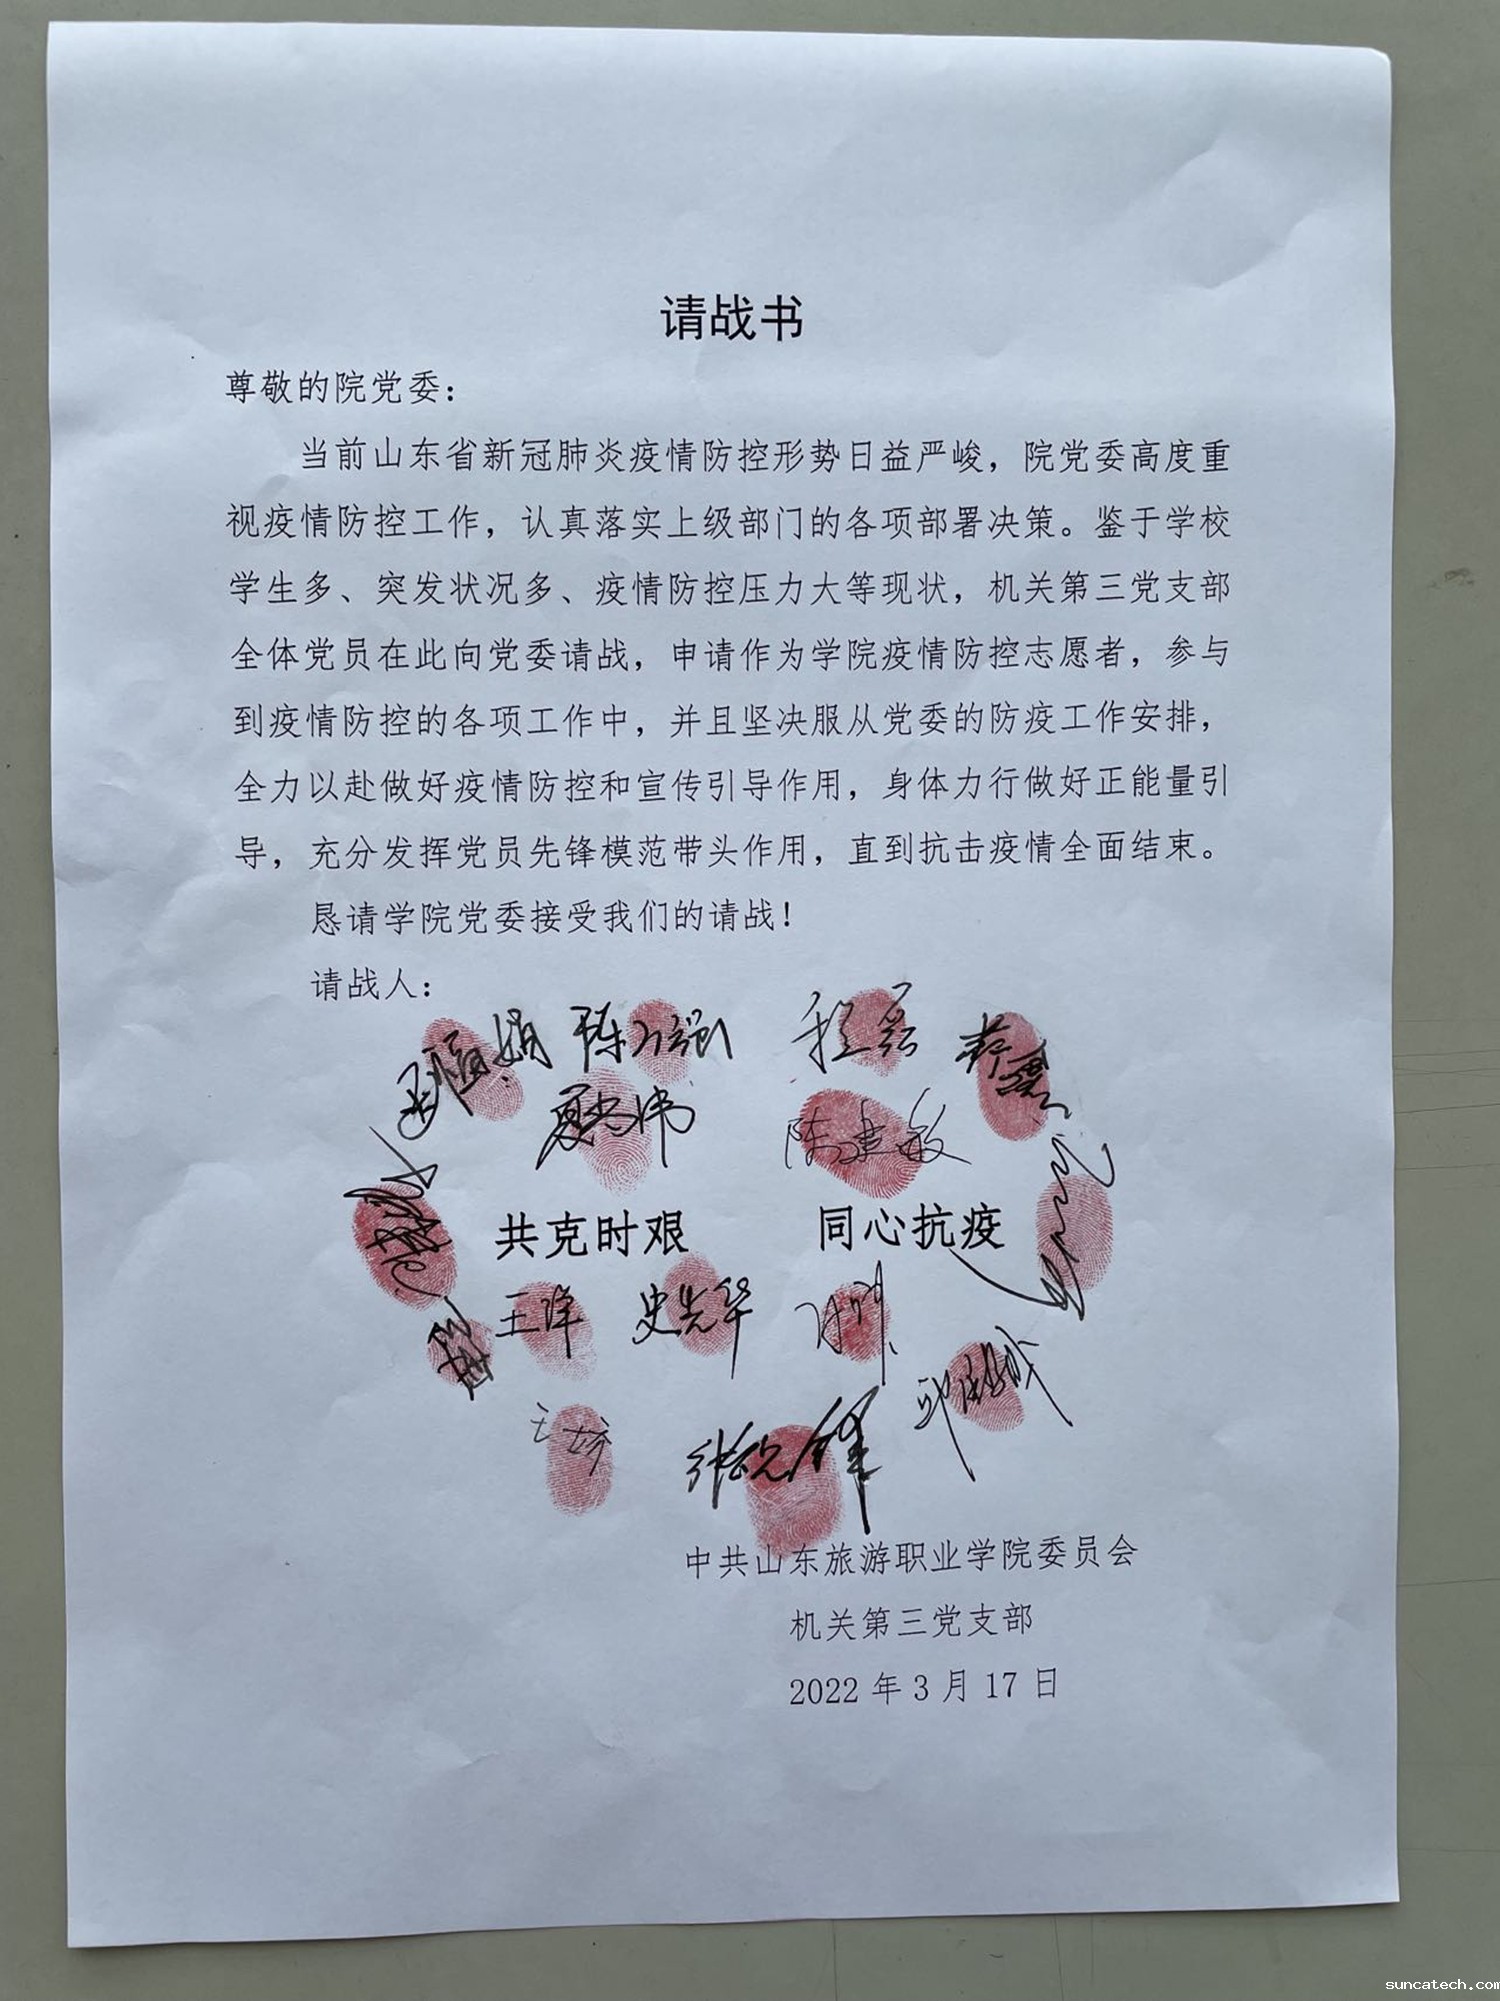 请战书
尊敬的院党委：
当前山东省新冠肺炎疫情防控形势日益严峻，院党委高度重
视疫情防控工作，认真落实上级部门的各项部署决策。鉴于学校
学生多、突发状况多、疫情防控压力大等现状，机关第三党支部
全体党员在此向党委请战，申请作为学院疫情防控志愿者，参与
到疫情防控的各项工作中，并且坚决服从党委的防疫工作安排，
全力以赴做好疫情防控和宣传引导作用，身体力行做好正能量引
导，充分发挥党员先锋模范带头作用，直到抗击疫情全面结束。
恳请学院党委接受我们的请战！
请战人：
陈建敏
共克时艰 同心抗疫
史先华
中共山东旅游职业学院委员会
机关第三党支部
2022 年 3 月 17 日
suncatech.com